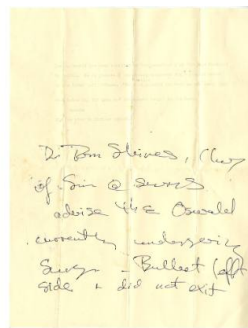 Dr Tom Shires, Chief
of Sur @ SWMS
advise that Oswald
currently undergoing
Surgery - Bullet left
side + did not exit